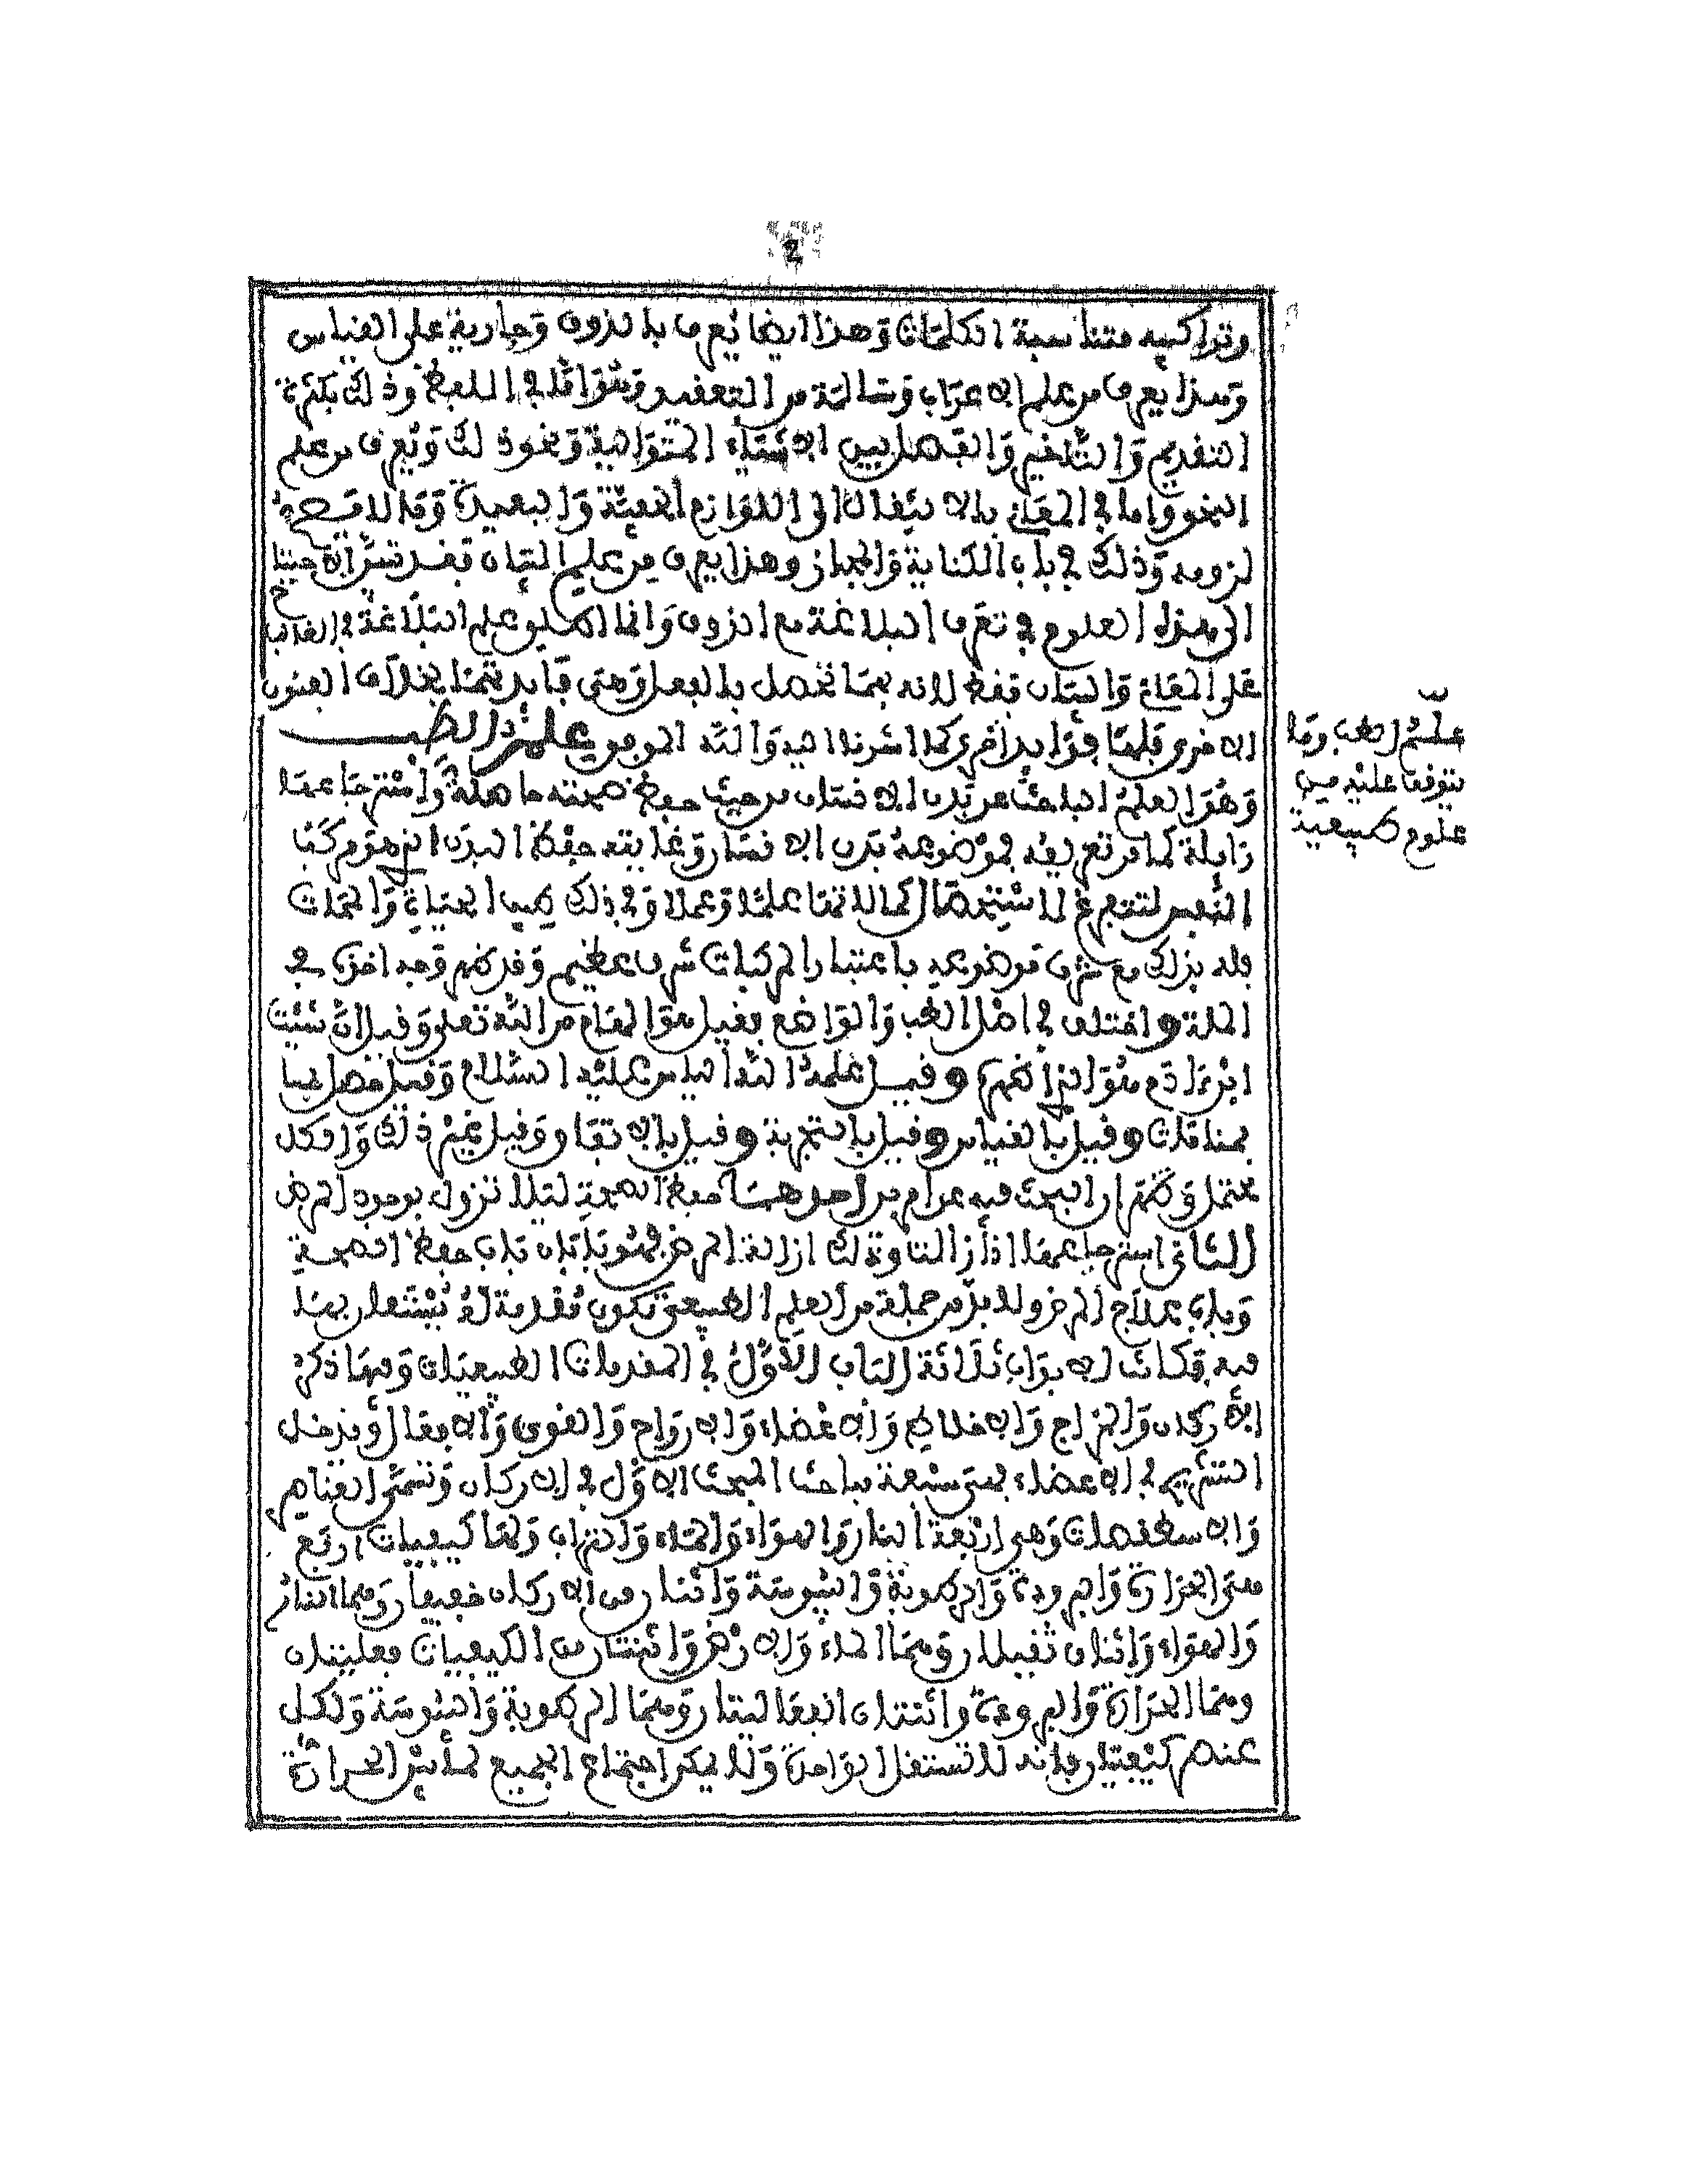 2
وتراكيبه متناسبة الكلمات وهذا ايضا يعرف بالذوق وجارية على القياس
وهذا يعرف من علم الاعراب وسالمة من التعقيد وتثواقلا في اللفظ وذلك بكثرة
التقديم والتاخير والفصل بين الاشياء المتوالية ونحو ذلك ويعرف من علم
النحو واما في المعاني بالانتقال الى اللوازم الخفية والبعيدة وما لا
لزومه وذلك في باب الكناية والمجاز وهذا يعرف من علم البيان فقد تبين الاحتياج
الى هذه العلوم في تعرف البلاغة مع الذوق وانما اطلق علم البلاغة في الغالب
على المعاني والبيان فقط لانه بهما تحصل بالفعل وهي فايدتهما بخلاف الفنون
الاخرى فلها فوايد اخرى كما اشرنا اليه والله الموفق علم الطب
وهو العلم الباحث عن بدن الانسان من حيث حفظ صحته حاصلة واسترجاعها
زايلة كما مر تعريفه فموضوعه بدن الانسان وغايته حفظ البدن الذي هو مركب
النفس لتتفرغ لاستحصال كمالاتها علما وعملا وفي ذلك طيب الحياة والممات
فله بذلك مع شرف موضوعه باعتبار المركبات شرف عظيم وقد ظهر وجه اخذه في
الملة واختلف في اصل الطب والواضع فقيل هو الهام من الله تعلى وقيل ان شيت
ابن ادم هو الذي اظهره وقيل علمه الله الياس عليه السلام وقيل حصل
بمنامات وقيل بالقياس وقيل بالتجربة وقيل بالاتفاق وقيل غير ذلك والكل
محتمل وظهر ان البحث فيه عن امرين احدهما حفظ الصحة ليلا تزول بوجود المرض
الثاني استرجاعها اذا زالت وذلك ازالة المرض فهو بابان باب حفظ الصحة
وباب علاج المرض ولا بد من جملة من العلم الطبيعي تكون مقدمة له يستعان بها
فيه فكانت الابواب ثلاثة الباب الاول في المقدمات الطبيعيات وفيها ذكر
الاركان والمزاج والاخلاط والاعضاء والارواح والقوى والافعال ويدخل
التشريح في الاعضاء فهي سبعة مباحث المبحث الاول في الاركان وتسمى العناصر
والاسطقصات وهي اربعة النار والهواء والماء والتراب ولها كيفيات اربع
هي الحرارة والبرودة والرطوبة واليبوسة واثنان من الاركان خفيفان وهما النار
والهواء واثنان ثقيلان وهما الماء والارض واثنتان من الكيفيات فعليتان
وهما الحرارة والبرودة واثنتان انفعاليتان وهما الرطوبة واليبوسة ولكل
عنصر كيفيتان فانه لا تستقل الواحدة ولا يمكن اجتماع الجميع لما بين الحرارة
علم الطب وما
يتوقف عليه من
علوم طبيعية